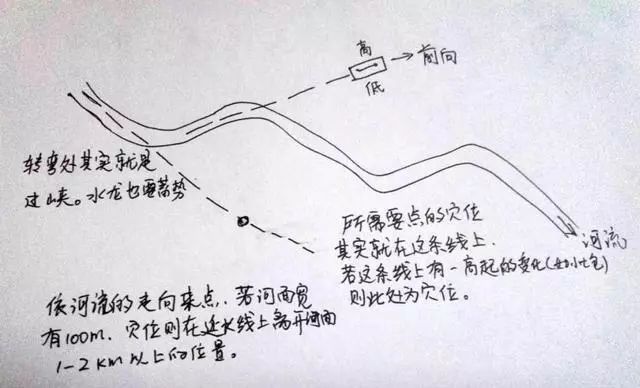 高
前向
低
转弯处其实就是
过峡。水龙也要蓄势
河流
所需要点的穴位
其实就在这条线上.
若这条线上有一高起的变化(如小土包)
则此处为穴位。
依河流的走向来点,若河面宽
有100m,穴位则在延长线上离开河面
1-2km以上的位置。